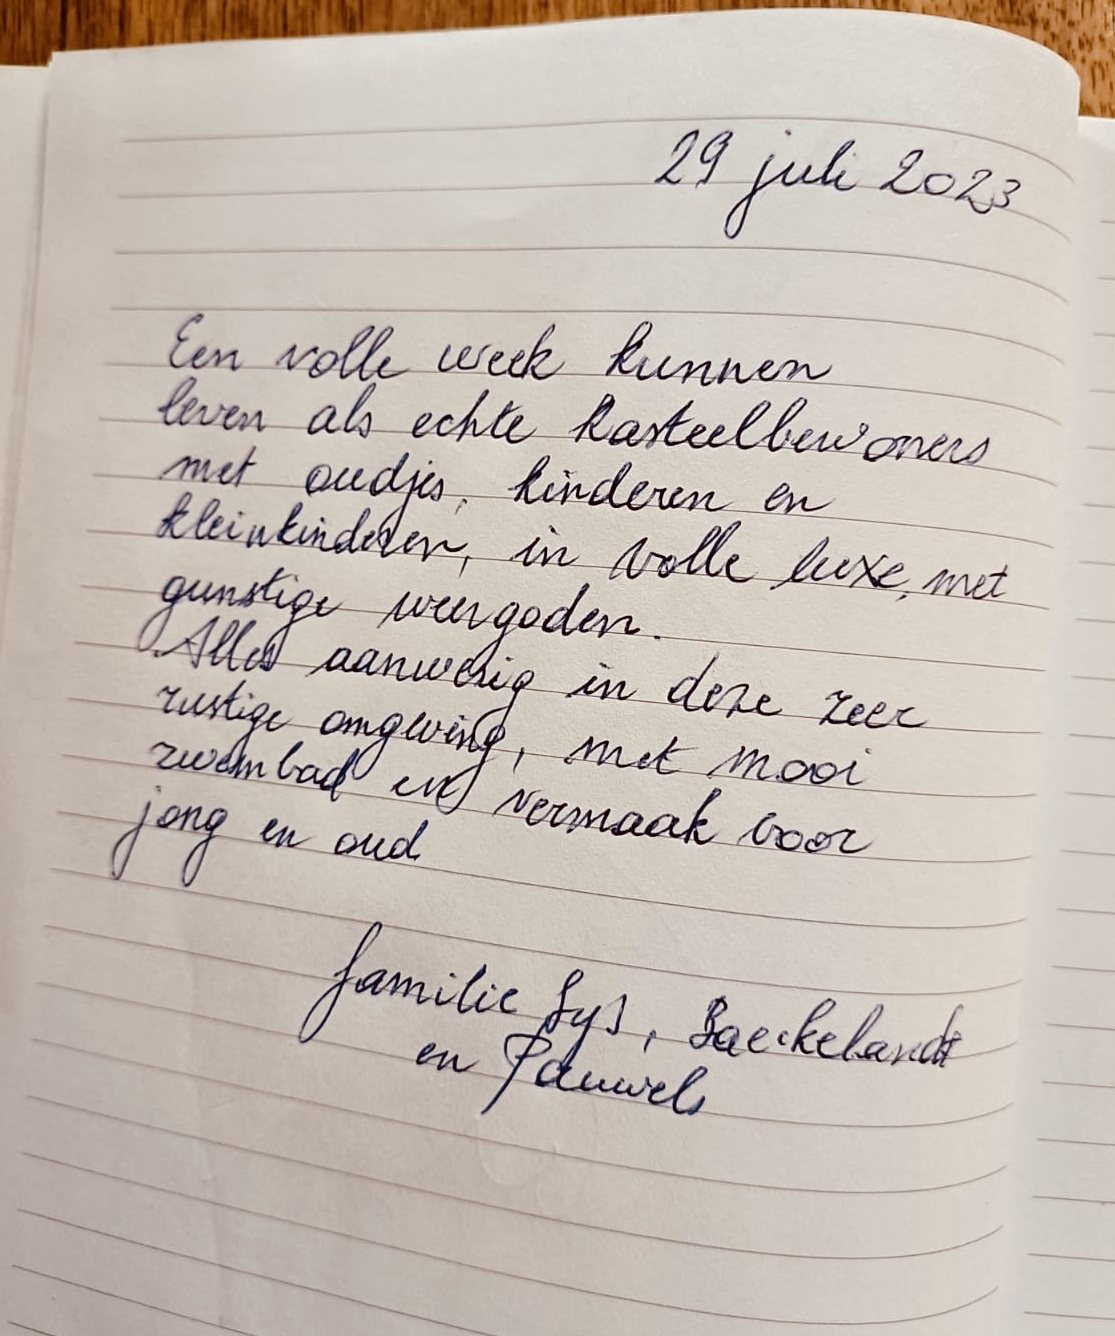 29 juli 2023
Een volle week kunnen
leven als echte kasteelbewoners
met oudjes, kinderen en
kleinkinderen, in volle luxe, met
gunstige weergoden.
Alles aanwezig in deze zeer
rustige omgeving, met mooi
zwembad en vermaak voor
jong en oud.
familie Sys, Baeckelandt
en Pauwels